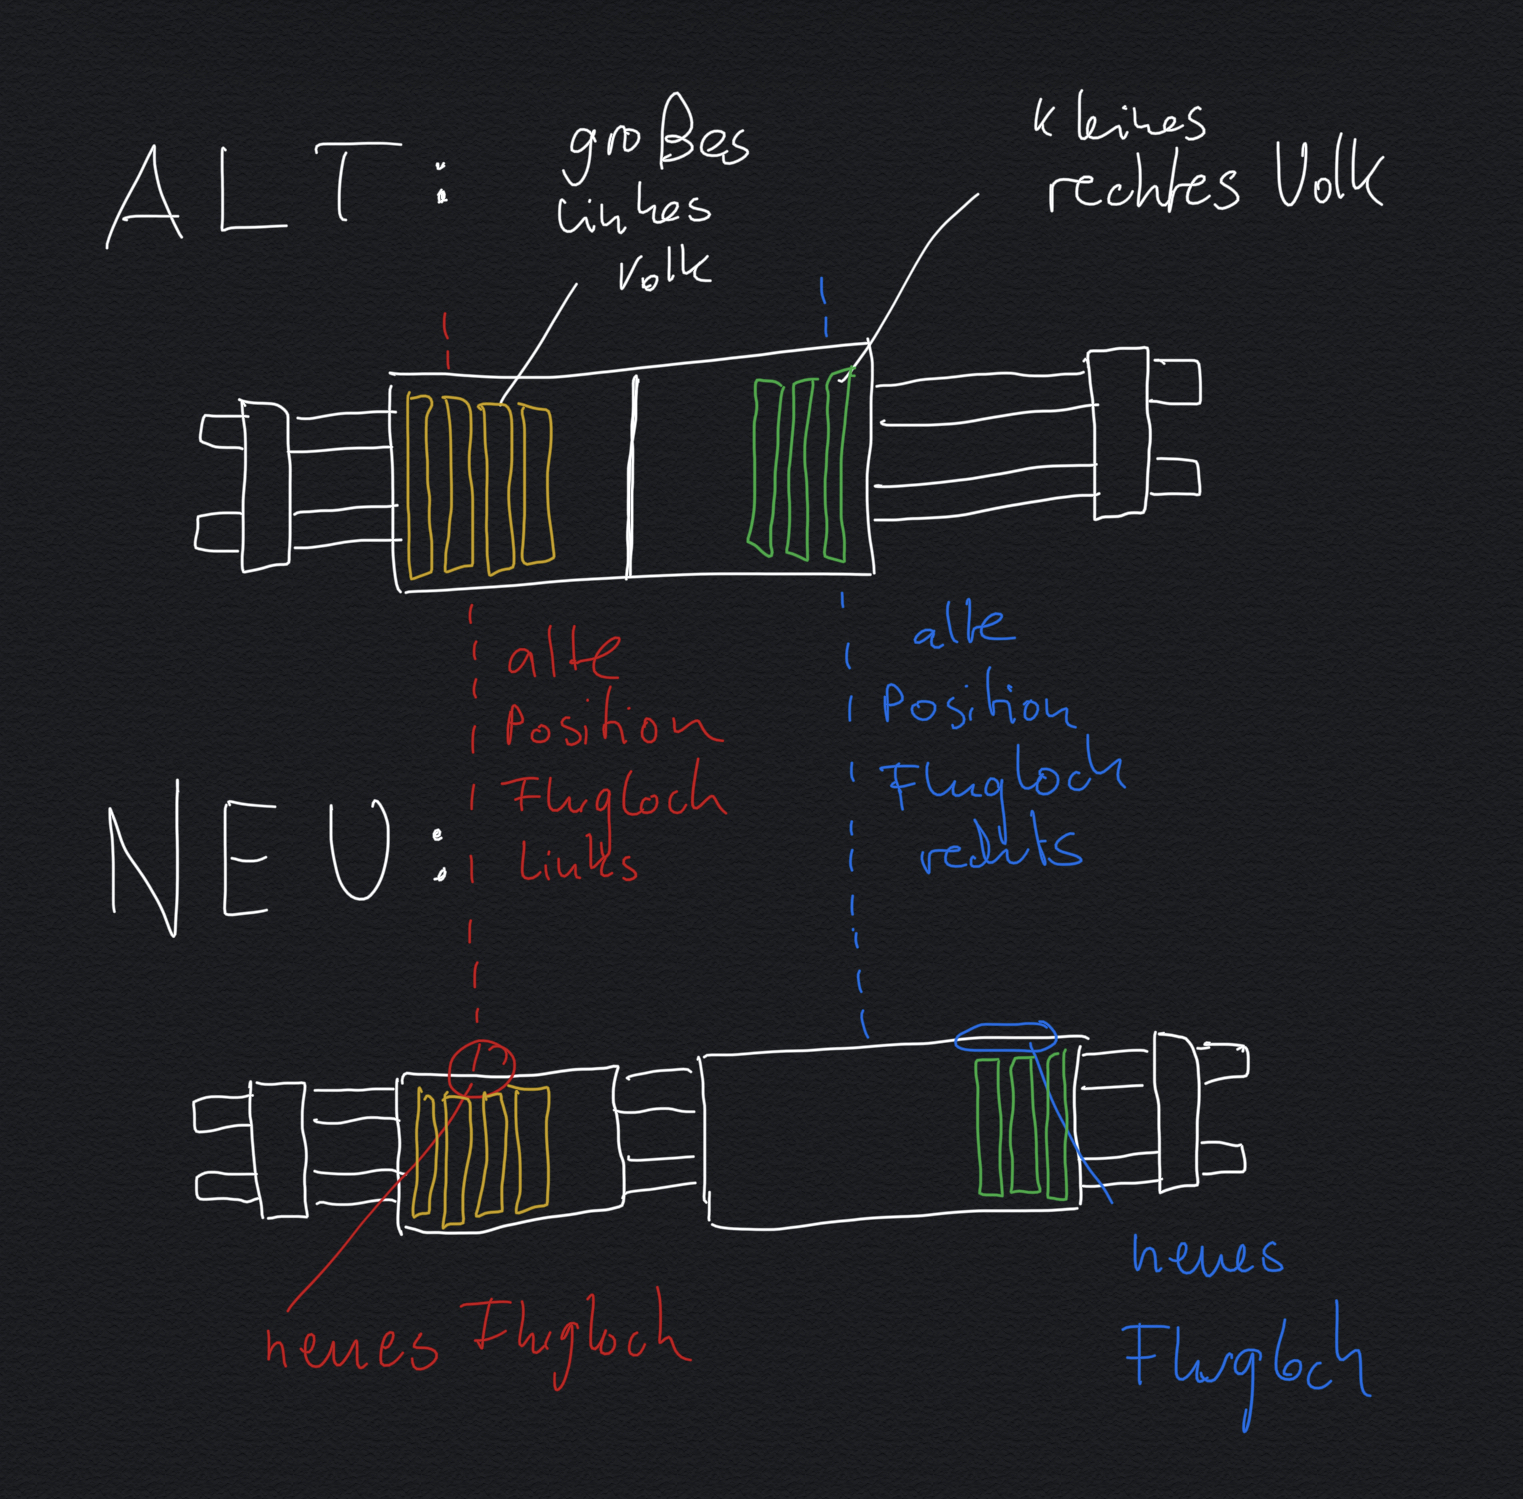 ALT:
großes
linkes
Volk
kleines
rechtes Volk
alte
Position
Flugloch
links
alte
Position
Flugloch
rechts
NEU:
neues Flugloch
neues
Flugloch